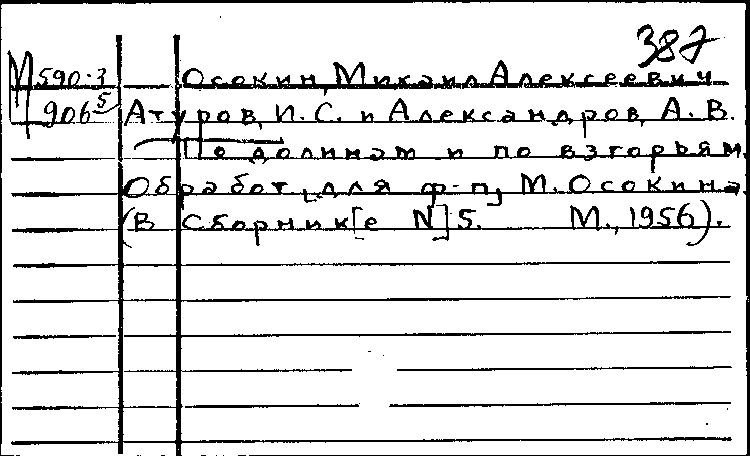 387
М590-3 Осокин, Михаил Алексеевич
906⁵ Атуров, И. С. и Александров, А. В.
По долинам и по взгорьям.
Обработ. [для ф-п] М. Осокина
(В Сборник[е N] 5. М., 1956).